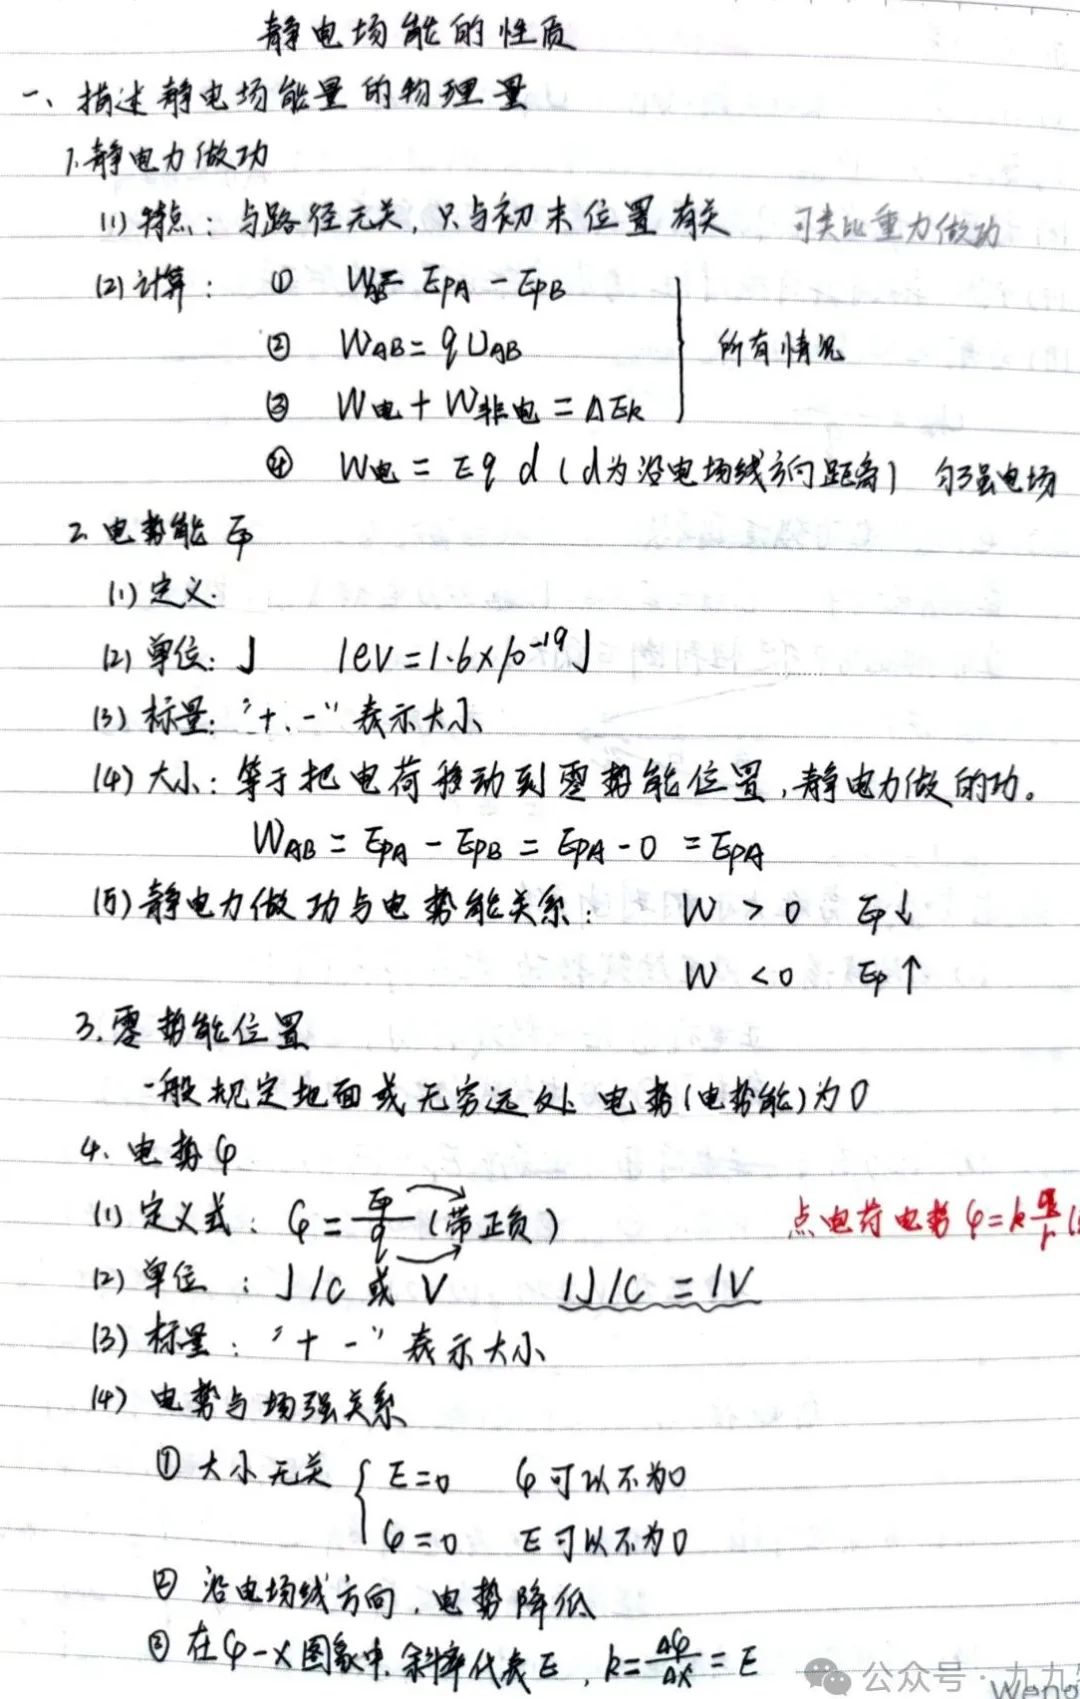 静电场能的性质
一、描述静电场能量的物理量
1.静电力做功
(1)特点：与路径无关，只与初末位置有关 可类比重力做功
(2)计算：① W = EpA - EpB
② WAB = qUAB
③ W电 + W非电 = ΔEk
所有情况
④ W电 = Eqd (d为沿电场线方向距离) 匀强电场
2.电势能 Ep
(1)定义.
(2)单位：J 1eV=1.6×10⁻¹⁹J
(3)标量："+、-"表示大小
(4)大小：等于把电荷移动到零势能位置，静电力做的功。
WAB = EpA - EpB = EpA - 0 = EpA
(5)静电力做功与电势能关系： W > 0 Ep↓
W < 0 Ep↑
3.零势能位置
一般规定地面或无穷远处电势(电势能)为0
4.电势φ
(1)定义式：φ = Ep/q (带正负) 点电荷电势φ=kq/r(
(2)单位：J/C 或 V 1J/C = 1V
(3)标量："+ -"表示大小
(4)电势与场强关系
①大小无关 { E=0 φ可以不为0
φ=0 E可以不为0
②沿电场线方向，电势降低
③在φ-x图象中，斜率代表E，k=Δφ/Δx=E
公众号·九九
Weng